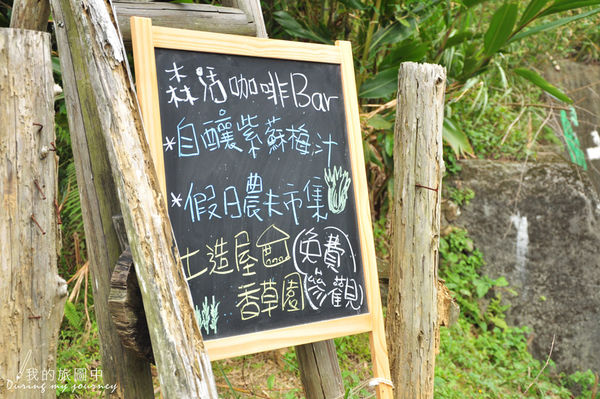 森活咖啡Bar
*自釀紫蘇梅汁
*假日農夫市集
土造屋
香草園
免費
參觀
我的旅圖中
During my journey